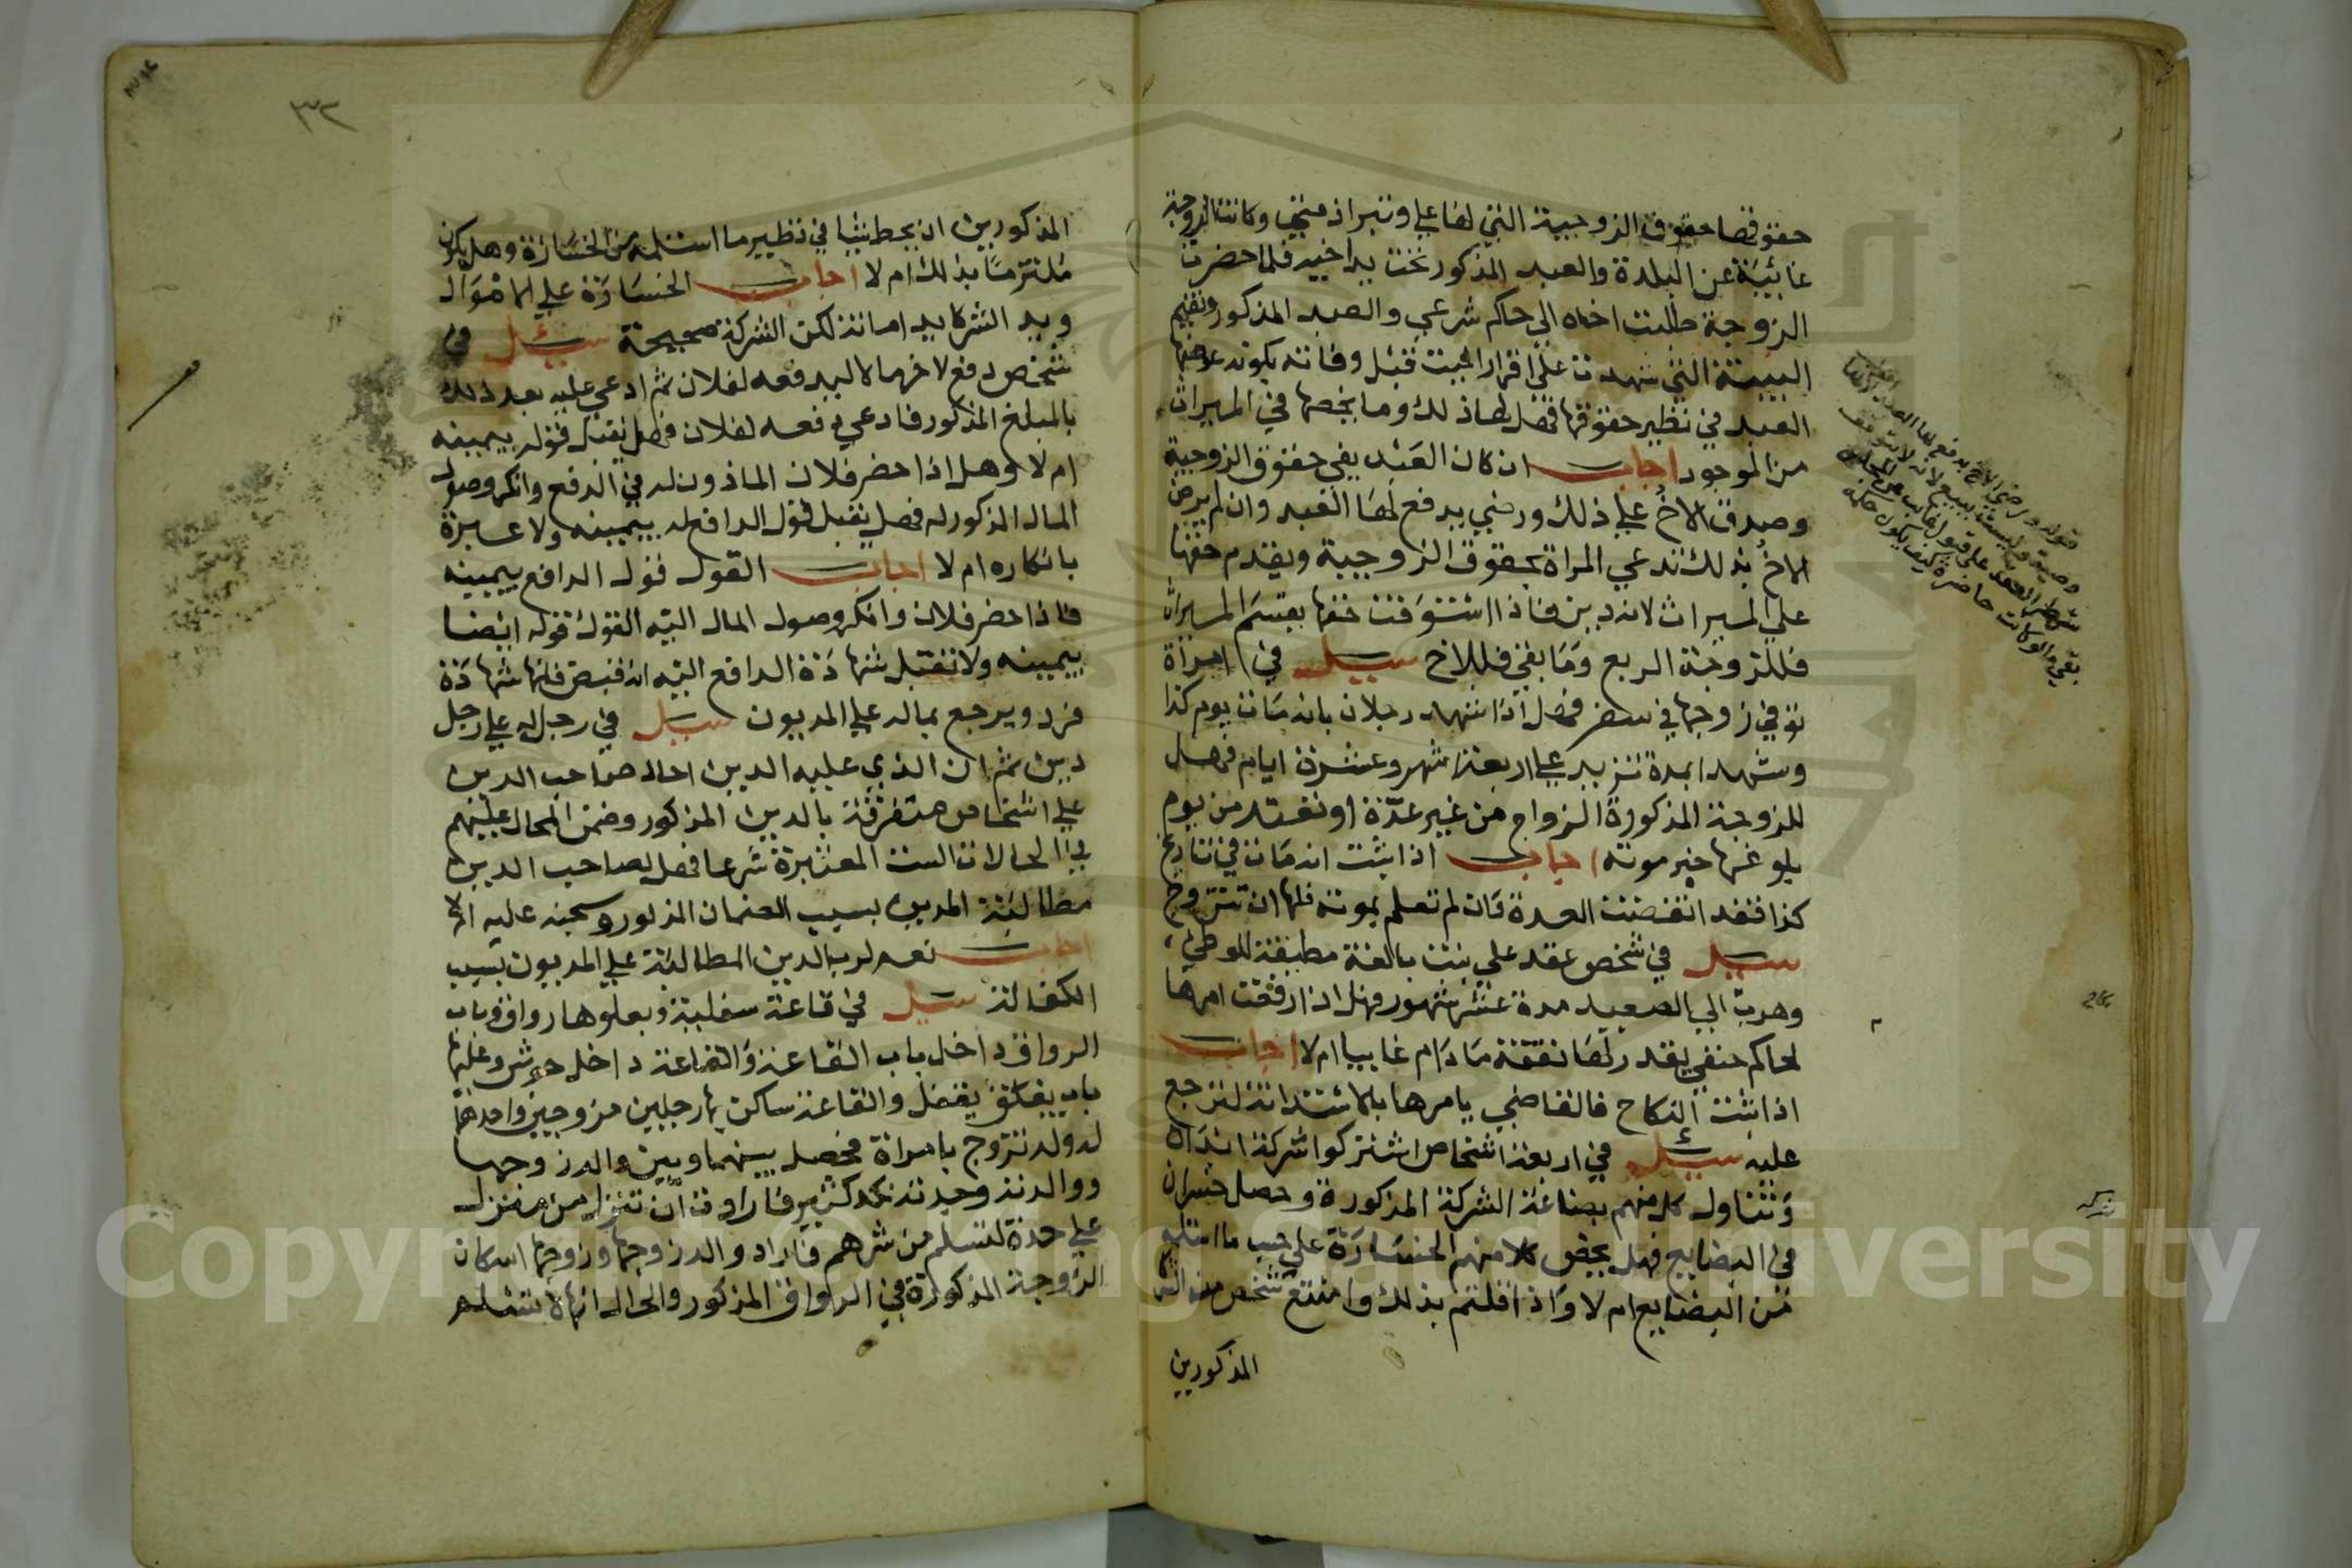 حقوقها حقوق الزوجية التي لها علي وتبرا ذمتي وكانت الزوجة
غائبة عن البلدة والعبد المذكور تحت يد اخيه فلما حضرت
الزوجة طلبت اخاه الي حاكم شرعي والعبد المذكور وتقيم
البينة التي شهدت علي اقرار الميت قبل وفاته يكون عوضها
العبد في نظير حقوقها فهل لها ذلك وما يخصها في الميراث
من الموجود اجاب ان كان العبد يفي حقوق الزوجية
وصدق الاخ علي ذلك ورضي يدفع لها العبد وان لم يرض
الاخ بذلك تدعي المراة بحقوق الزوجية ويقدم حقها
علي الميراث لانه دين فاذا استوفت حقها يقسم الميراث
فللزوجة الربع وما بقي فللاخ سيل في امراة
توفي زوجها في سفر فهل اذا شهد رجلان بانه مات يوم كذا
وشهدا بمدة تزيد علي اربعة اشهر وعشرة ايام فهل
للزوجة المذكورة الزواج من غير عدة او تعتد من يوم
بلوغها خبر موته اجاب اذا ثبت انه مات في تاريخ
كذا فقد انقضت العدة فان لم تعلم بموته فلها ان تتزوج
سيل في شخص عقد علي بنت بالغة مطيقة للوطي
وهرب الي الصعيد مدة عشر شهور فهل اذا رفعت امرها
لحاكم حنفي يقدر لها نفقة ما دام غايبا ام لا اجاب
اذا ثبت النكاح فالقاضي يامرها بالاستدانة لترجع
عليه سيل في اربعة اشخاص اشتركوا شركة ابدان
وتناول كل منهم بضاعة الشركة المذكورة وحصل خسران
في البضايع فهل يخص كلا منهم الخسارة علي حسب ما استلمه
من البضايع ام لا واذا قلتم بذلك وامتنع شخص من الشركا
المذكورين
قوله ورضي الاخ يدفع لها العبد
٣٢
المذكورين ان يحط شيا في نظير ما استلمه من الخسارة وهل يكون
ملتزما بذلك ام لا اجاب الخسارة علي الاموال
ويد الشركا يد امانة لكن الشركة صحيحة سيل في
شخص دفع لاخر مالا ليدفعه لفلان ثم ادعي عليه بعد ذلك
بالمبلغ المذكور فادعي دفعه لفلان فهل يقبل قوله بيمينه
ام لا وهل اذا حضر فلان الماذون له في الدفع وانكر وصول
المال المذكور له فهل يقبل قول الدافع له بيمينه ولا عبرة
بانكاره ام لا اجاب القول قول الدافع بيمينه
فاذا حضر فلان وانكر وصول المال اليه القول قوله ايضا
بيمينه ولا تقبل شهادة الدافع اليه انه قبض فانها شهادة
فرد ويرجع بماله علي المديون سيل في رجل له علي رجل
دين ثم ان الذي عليه الدين احال صاحب الدين
علي اشخاص متفرقة بالدين المذكور وضمن المحال عليهم
في الحالات الست المعتبرة شرعا فهل لصاحب الدين
مطالبة المدين بسبب الضمان المذكور وسجنه عليه ام لا
اجاب نعم لرب الدين المطالبة علي المديون بسبب
الكفالة سيل في قاعة سفلية ويعلوها رواق وباب
الرواق داخل باب القاعة والقاعة داخل حوش وعليها
باب يغلق بقفل والقاعة ساكن بها رجلين مزوجين واحدهما
له ولد تزوج بامراة فحصل بينهما وبين والد زوجها
ووالدته وجدته نكد كثير فارادت ان تنزل من منزل
علي حدة لتسلم من شرهم فاراد والد زوجها وزوجها اسكان
الزوجة المذكورة في الرواق المذكور والحال انها لا تسلم